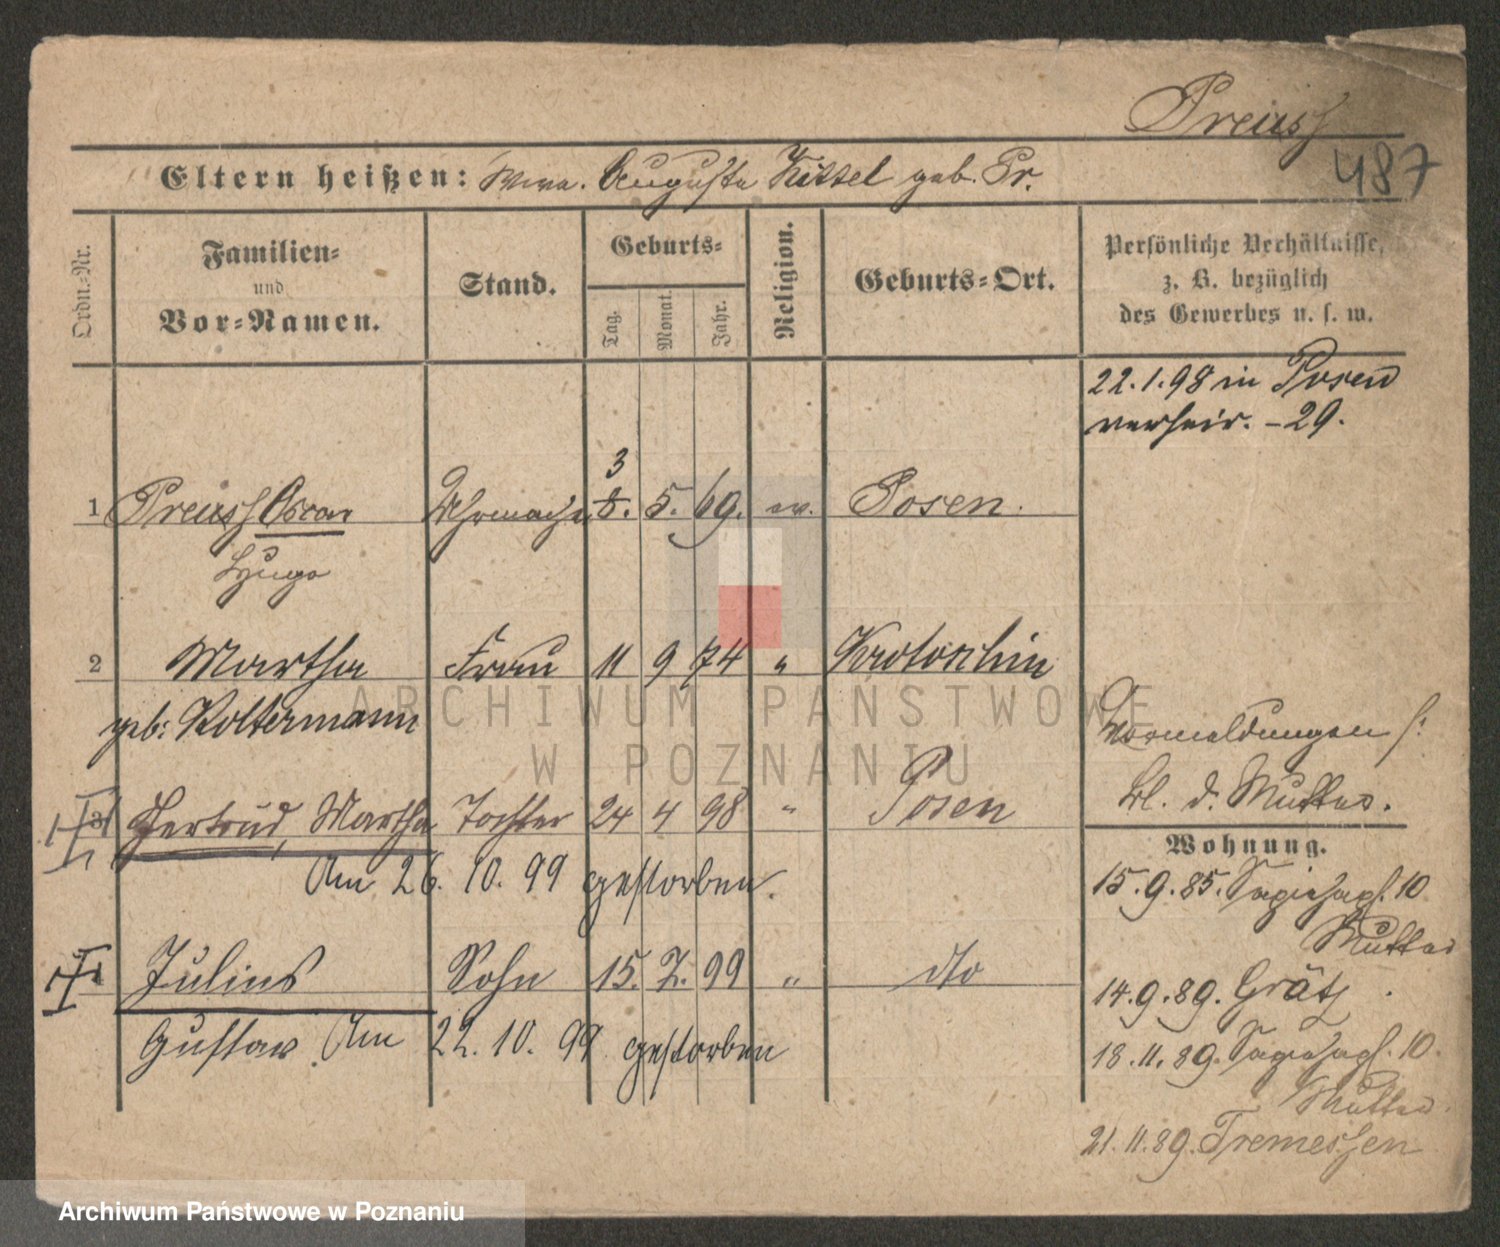 Preuss
487
Eltern heißen: Wwe. Auguste Kittel geb. Pr.
Ordn.-Nr.
Familien-
und
Vor-Namen.
Stand.
Geburts-
Tag. Monat. Jahr.
Religion.
Geburts-Ort.
Persönliche Verhältnisse,
z. B. bezüglich
des Gewerbes u. s. w.
22.1.98 in Posen
verheir. - 29.
3
1 Preuss Oscar Uhrmacher 8. 5. 69. ev. Posen.
Hugo
2 Martha Frau 11 9 74 " Krotoschin
geb: Koltermann
Vormeldungen s:
Bl. d. Mutter.
3 Gertrud, Martha Tochter 24 4 98 " Posen
Am 26. 10. 99 gestorben.
Wohnung.
15.9.85. 10
Mutter
Julius Sohn 15. 7. 99 " dto
14.9.89. Grätz.
Gustav Am 22. 10. 99 gestorben
18.11.89. 10.
Mutter.
21.11.89. Tremessen
ARCHIWUM PAŃSTWOWE
W POZNANIU
Archiwum Państwowe w Poznaniu